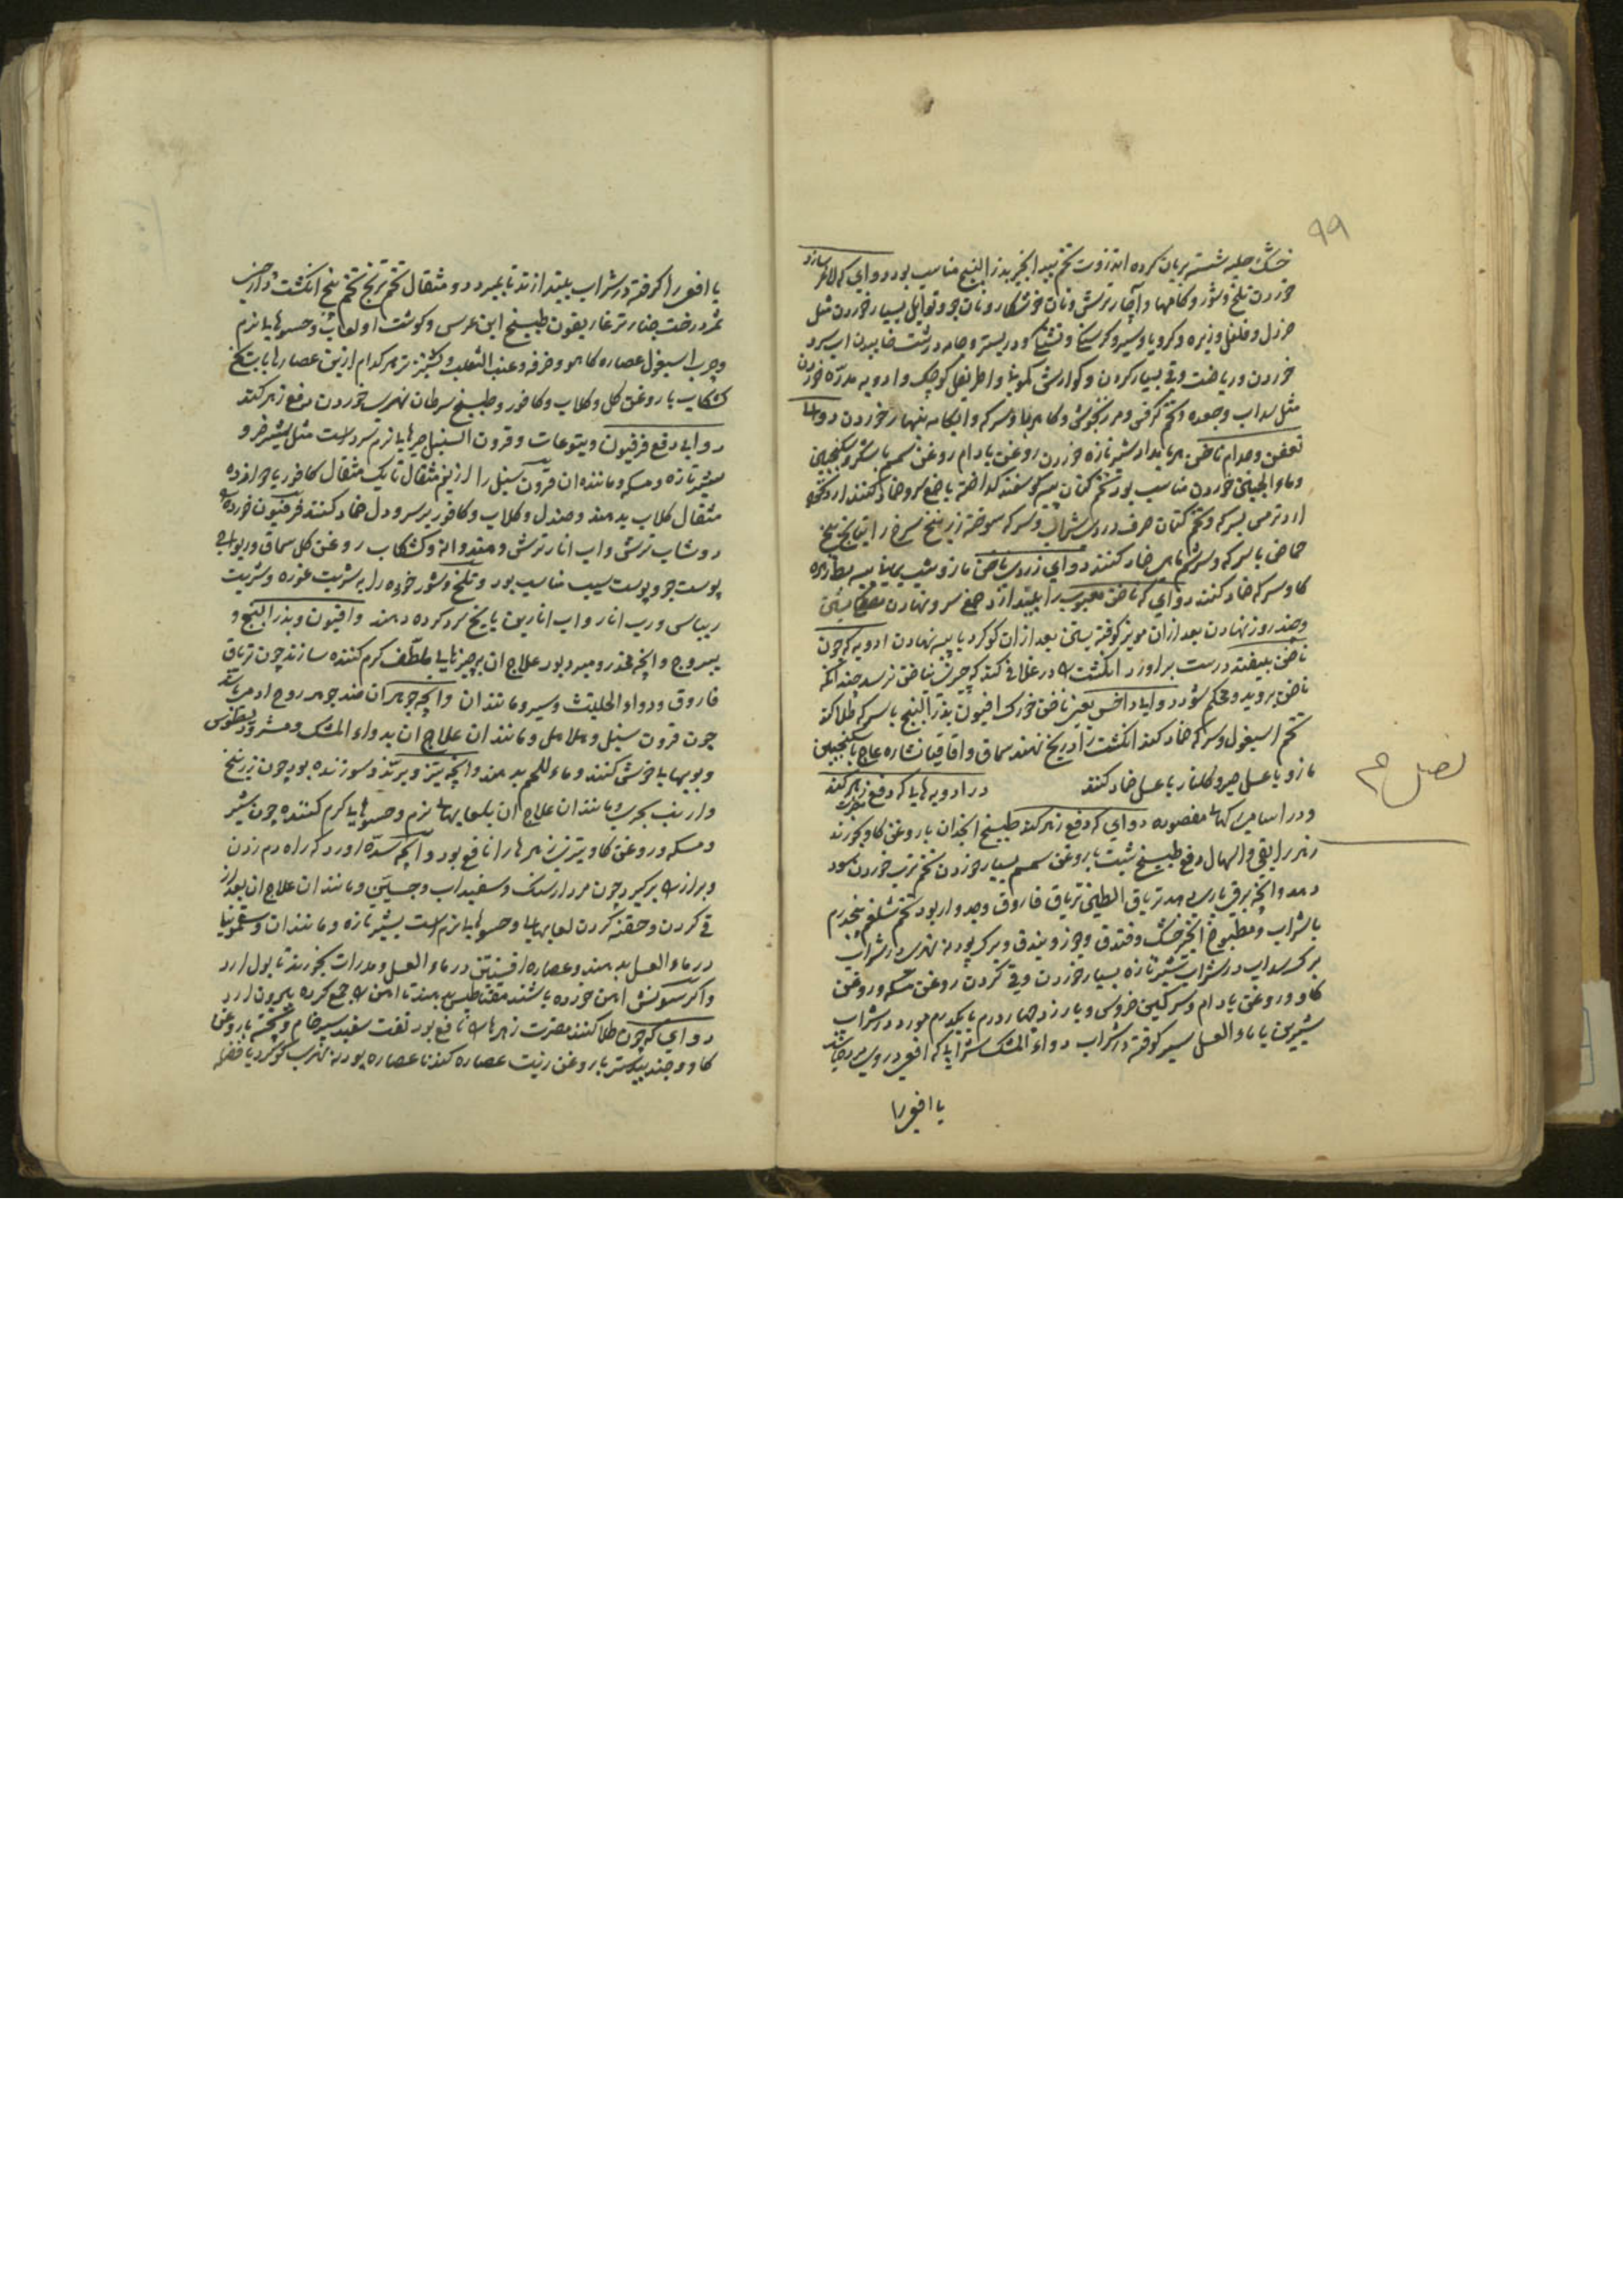 ۹۹
خشک حلبه شسته بریان کرده انزروت تخم بید انجیر بذر البنج مناسب بود دوایی که لاغر سازد
خوردن تلخ و شور و کامها و آچار ترش و نان خشکار و نان جو و توابل بسیار خوردن مثل
خردل و فلفل و زیره و کرویا و سیر و گرسنگی و تشنگی و در بستر و جامه درشت خابیدن اب سرد
خوردن و ریاضت و قی بسیار کردن و گوارش کمونی و اطریفل کوچک و ادویه مدره خوردن
مثل سداب و جعده و تخم کرفس و مرزنجوش و کاه ربا و سرکه و ابکامه بنهار خوردن دوای
تعفن و جدام ناخن بربامداد شیر تازه خوردن روغن بادام روغن سمسم با شکر و سکنجبین
وماء الجبن خوردن مناسب بود تخم کتان پیه گوسفند گداخته با صمغ سرو ضماد کنند ارد گندم
ارد ترمس بسرکه و تخم کتان حرف دردی شراب و سرکه سوخته زرنیخ سرخ راتیانج بیخ
حماض با سرکه و سریشم ماهی ضماد کنند دوای زردی ناخن مازو شب یمانی پیه بط زهره
گاو سرکه ضماد کنند دوای که ناخن معیوب را بیندازد صمغ سرو نهادن مصطکی بستن
و چند روز نهادن بعد ازان مویز کوفته بستن بعد ازان گوگرد با پیه نهادن ادویه که چون
ناخن بیفتد درست براورد انگشت را در غلافی کند که چیزی بناخن نرسد چندانکه
ناخن بروید و محکم شود دوای داخس یعنی ناخن خورک افیون بذر البنج با سرکه طلا کند
تخم اسبغول و سرکه ضماد کند انگشت را در یخ نهند سماق و اقاقیا نشاره عاج با سکنجبین
مازو با عسل صبر و گلنار با عسل ضماد کنند در ادویه هایا که دفع زهر کند
فصل م
و در اسامی کیها مقصوده دوای که دفع زهر کند طبیخ انجدان با روغن گاو بخورند مضرت
زهر را بقی و اسهال دفع طبیخ شبت با روغن سمسم بسیار خوردن تخم ترب خوردن سود
دهد و انچه برق بازی دهد تریاق الطین تریاق فاروق و جدوار بود تخم شلغم پنجدرم
با شراب و مطبوخ انجیر خشک و فندق و جوز و بندق و برگ پودنه نهری در شراب
برگ سداب در شراب شیر تازه بسیار خوردن و قی کردن روغن مسکه و روغن
گاو و روغن بادام و سرگین خروس و بارزد چهار درم با یکدرم مورد در شراب
شیرین یا ماء العسل سیر کوفته در شراب دواء المشک شرابا که افعی در وی مرده باشد
یا افعی را
یا افعی را کوفته در شراب بیندازند تا بمیرد دو مثقال تخم ترنج تخم پنج انگشت دارچینی
ثمر درخت چنار تر غاریقون طبیخ ابن عرس و گوشت او لعاب و حسوهایا نرم
و چرب اسبغول عصاره کاهو و خرفه و عنب الثعلب و گشنیز تر هر کدام ازین عصارها با بتلخ
کشکاب با روغن گل و گلاب و کافور و طبیخ سرطان نهری خوردن دفع زهر کند
دوای دفع فرفیون و یتوعات و قرون السنبل چیزهایا نرم سرد است مثل شیر خر و
شیر تازه و مسکه و مانند ان قرون سنبل را از نیم مثقال تا یک مثقال کافور با چهارده
مثقال گلاب بدهند و صندل و گلاب و کافور بر سر و دل ضماد کنند فرفیون خورده را
دوشاب ترش و اب انار ترش و هندوانه و کشکاب روغن گل سماق و ریواس
پوست جو و پوست سیب مناسب بود و تلخ و شور خورده را بشربت غوره و شربت
ریباس و رب انار و اب انارین با یخ سرد کرده دهند و افیون و بذر البنج و
یبروج و انچه مخدر و مبرد بود علاج ان بچیزهایا ملطف گرم کننده سازند چون تریاق
فاروق و دواء الحلتیت و سیر و مانند ان و انچه جوهر ان ضد جوهر روح ادمی باشد
چون قرون سنبل و هلاهل و مانند ان علاج ان بدواء المشک و مثرودیطوس
و بویهایا خوش کنند و ماء اللحم بدهند و انچه تیز و برنده و سوزنده بود چون زرنیخ
و ارنب بحری و مانند ان علاج ان بلعابهای نرم و حسوهایا گرم کننده چون شیر
و مسکه و روغن گاو تیزی زهرها را نافع بود و انچه سده اورد که راه دم زدن
و براز را بگیرد چون مردارسنگ و سفیداب و جبسین و مانند ان علاج ان بعد از
قی کردن و حقنه کردن لعابهایا و حسوهایا نرم است بشیر تازه و مانند ان و سقمونیا
در ماء العسل بدهند و عصاره افسنتین در ماء العسل و مدرات بخورند تا بول ارد
و اگر سونش اهن خورده باشند مقناطیس بدهند تا اهن را جمع کرده بیرون ارد
دوای که چون طلا کنند مضرت زهرها را نافع بود نفت سفید سیر خام و پخته با روغن
گاو و جندبیدستر با روغن زیت عصاره گندنا عصاره پودنه نهری گوگرد با فضله